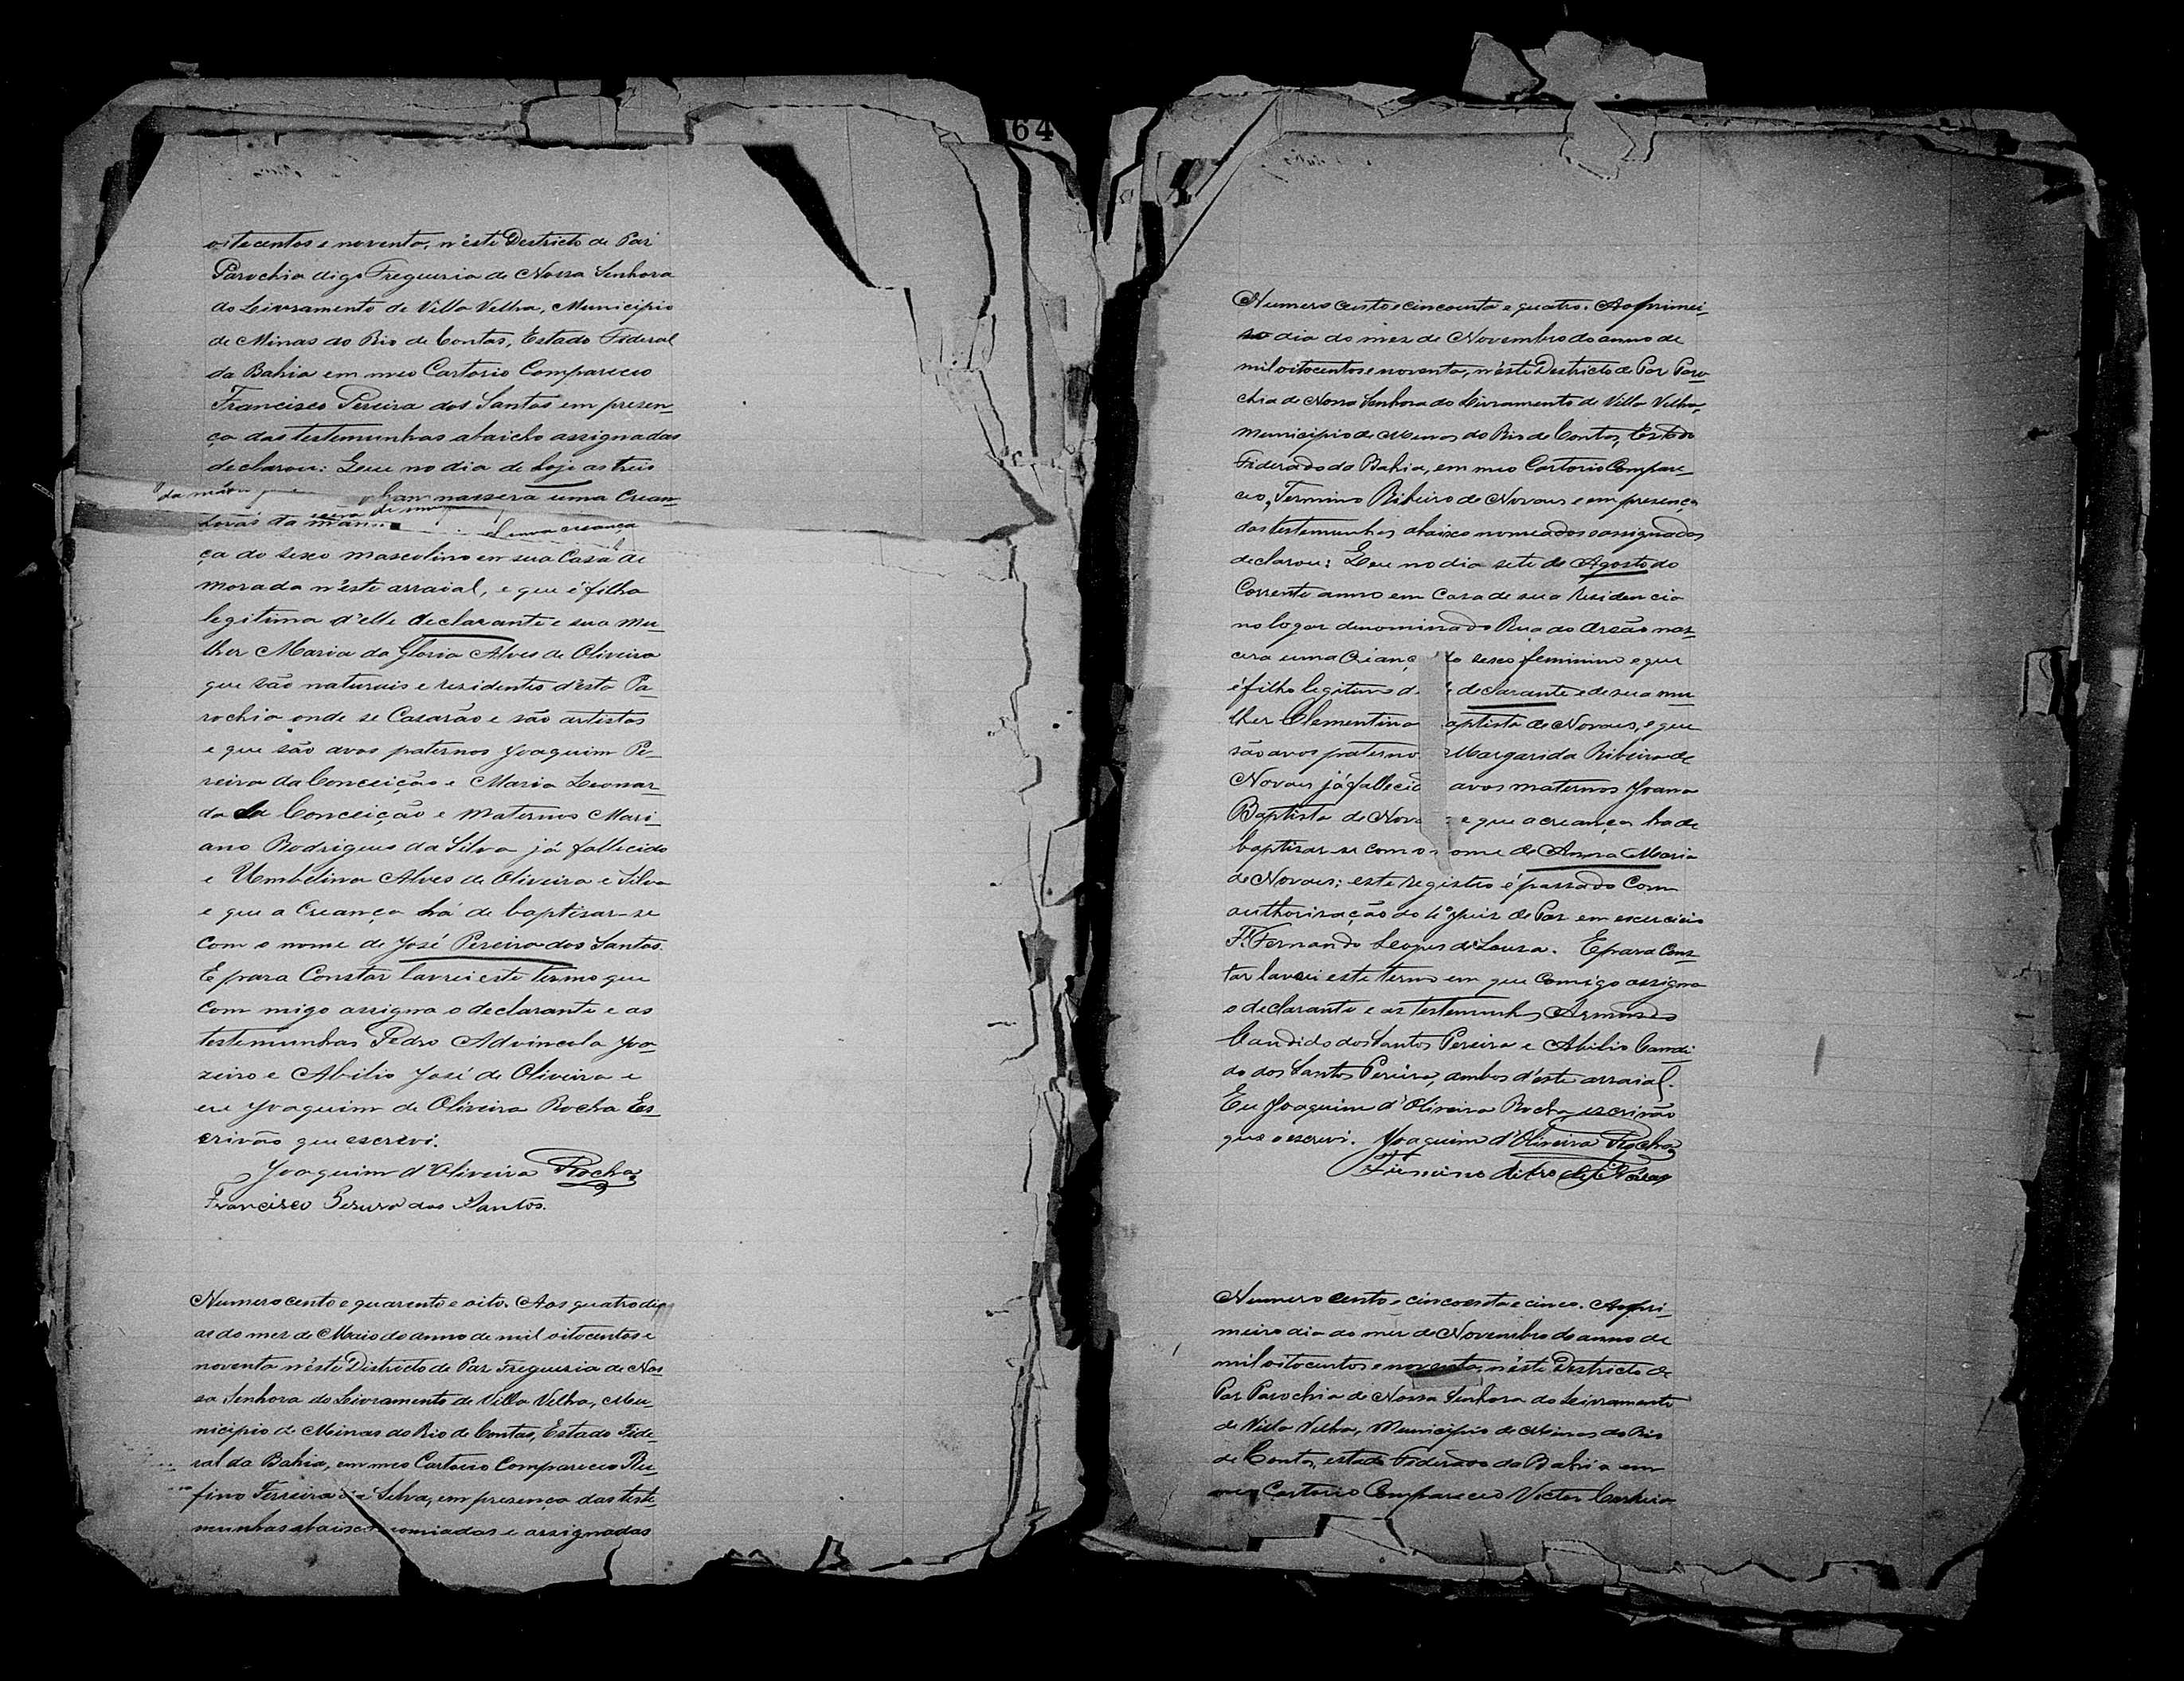 64
oitocentos e noventa, n'este Destricto de Paz
Parochia digo Freguesia de Nossa Senhora
do Livramento de Villa Velha, Municipio
de Minas do Rio de Contas, Estado Federal
da Bahia em meo Cartorio Compareceo
Francisco Pereira dos Santos em presen-
ça das testemunhas abaicho assignadas
declarou: Que no dia de hoje as treis
da nassera uma Crean-
horas da
uma creança
ça do sexo mascolino em sua Casa de
morada n'este arraial, e que é filha
legitima d'elle declarante e sua mu-
lher Maria da Gloria Alves de Oliveira
que são naturais e residentes d'esta Pa-
rochia onde se Casarão e são artistas
e que são avos paternos Joaquim Pe-
reira da Conceição e Maria Leonar-
da da Conceição e maternos Mari-
ano Rodrigues da Silva já fallecido
e Umbelina Alves de Oliveira e Silva
e que a Creança há de baptisar-se
com o nome de José Pereira dos Santos.
E para Constar lavrei este termo que
com migo assigna o declarante e as
testemunhas Pedro Advincola Joa-
zeiro e Abilio José de Oliveira e
eu Joaquim de Oliveira Rocha Es-
crivão que escrevi.
Joaquim d'Oliveira Rocha
Francisco Pereira dos Santos.
Numero cento e quarenta e oito. Aos quatro di
as do mez de Maio do anno de mil oitocentos e
noventa n'este Districto de Paz Freguesia de Nos-
sa Senhora do Livramento de Villa Velha, Mu-
nicipio de Minas do Rio de Contas, Estado Fide-
ral da Bahia, em meo Cartorio Compareceo Ru-
fino Ferreira da Silva, em presença das teste-
munhas abaixo nomiadas e assignadas
Numero cento e cincoenta e quatro. Ao primei-
ro dia do mez de Novembro do anno de
mil oitocentos e noventa, n'este Destricto de Paz Paro-
chia de Nossa Senhora do Livramento de Villa Velha,
Municipio de Minas do Rio de Contas, Estado
Federado da Bahia, em meo Cartorio Compare-
ceo, Firmino Ribeiro de Novaes e em presença
das testemunhas abaixo nomeadas e assignadas
declarou: Que no dia sete de Agosto do
Corrente anno em Casa de sua residencia
no logar denominado Rua do Areão nas-
cera uma Crianç do sexo feminino e que
é filha legitima d declarante e de sua mu-
lher Clementina aptista de Novaes, e que
são avos paterno Margarida Ribeiro de
Novaes já fallecid avos maternos Joana
Baptista de Nova e que a creança ha de
baptisar-se com o nome de Anna Maria
de Novaes; este registro é passado Com
authorisação do 4º Juiz de Paz em exercicio
Fernando Leopes de Souza. E para Cons-
tar lavrei este termo em que Comigo assigna
o declarante e as testemunhas Armindo
Candido dos Santos Pereira e Abilio Candi-
do dos Santos Pereira, ambos d'este arraial.
Eu Joaquim d'Oliveira Rocha escrivão
que o escrevi. Joaquim d'Oliveira Rocha
Firmino Ribro de Novaes
Numero cento e cincoenta e cinco. Ao pri-
meiro dia do mez de Novembro do anno de
mil oitocentos e noventa, n'este Destricto de
Paz Parochia de Nossa Senhora do Livramento
de Villa Velha, Municipio de Minas do Rio
de Contas, estado Federado da Bahia em
meo Cartorio Compareceo Victor